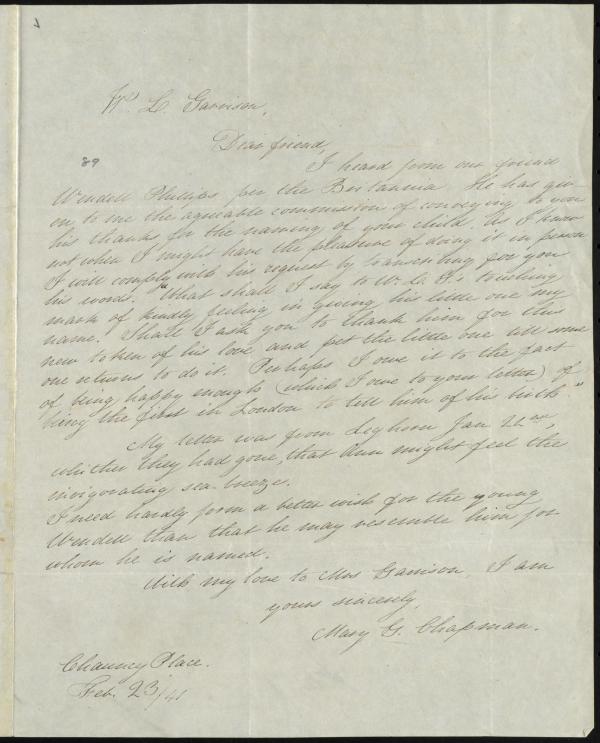 Wm L. Garrison,
Dear friend,
89
I heard from our friend
Wendell Phillips per the Britannia. He has giv-
en to me the agreeable commission of conveying to you
his thanks for the naming of your child. As I know
not when I might have the pleasure of doing it in person
I will comply with his request by transcribing for you
his words. "What shall I say to W. L. G.'s touching
mark of kindly feeling in giving his little one my
name. Shall I ask you to thank him for this
new token of his love, and pet the little one till some
one returns to do it. Perhaps I owe it to the fact
of being happy enough (which I owe to your letter) of
being the first in London to tell him of his birth."
My letter was from Leghorn Jan 22nd,
whither they had gone, that Ann might feel the
invigorating sea-breeze.
I need hardly form a better wish for the young
Wendell than that he may resemble him for
whom he is named.
With my love to Mrs Garrison, I am
yours sincerely,
Mary G. Chapman.
Chauncy Place.
Feb. 23/41